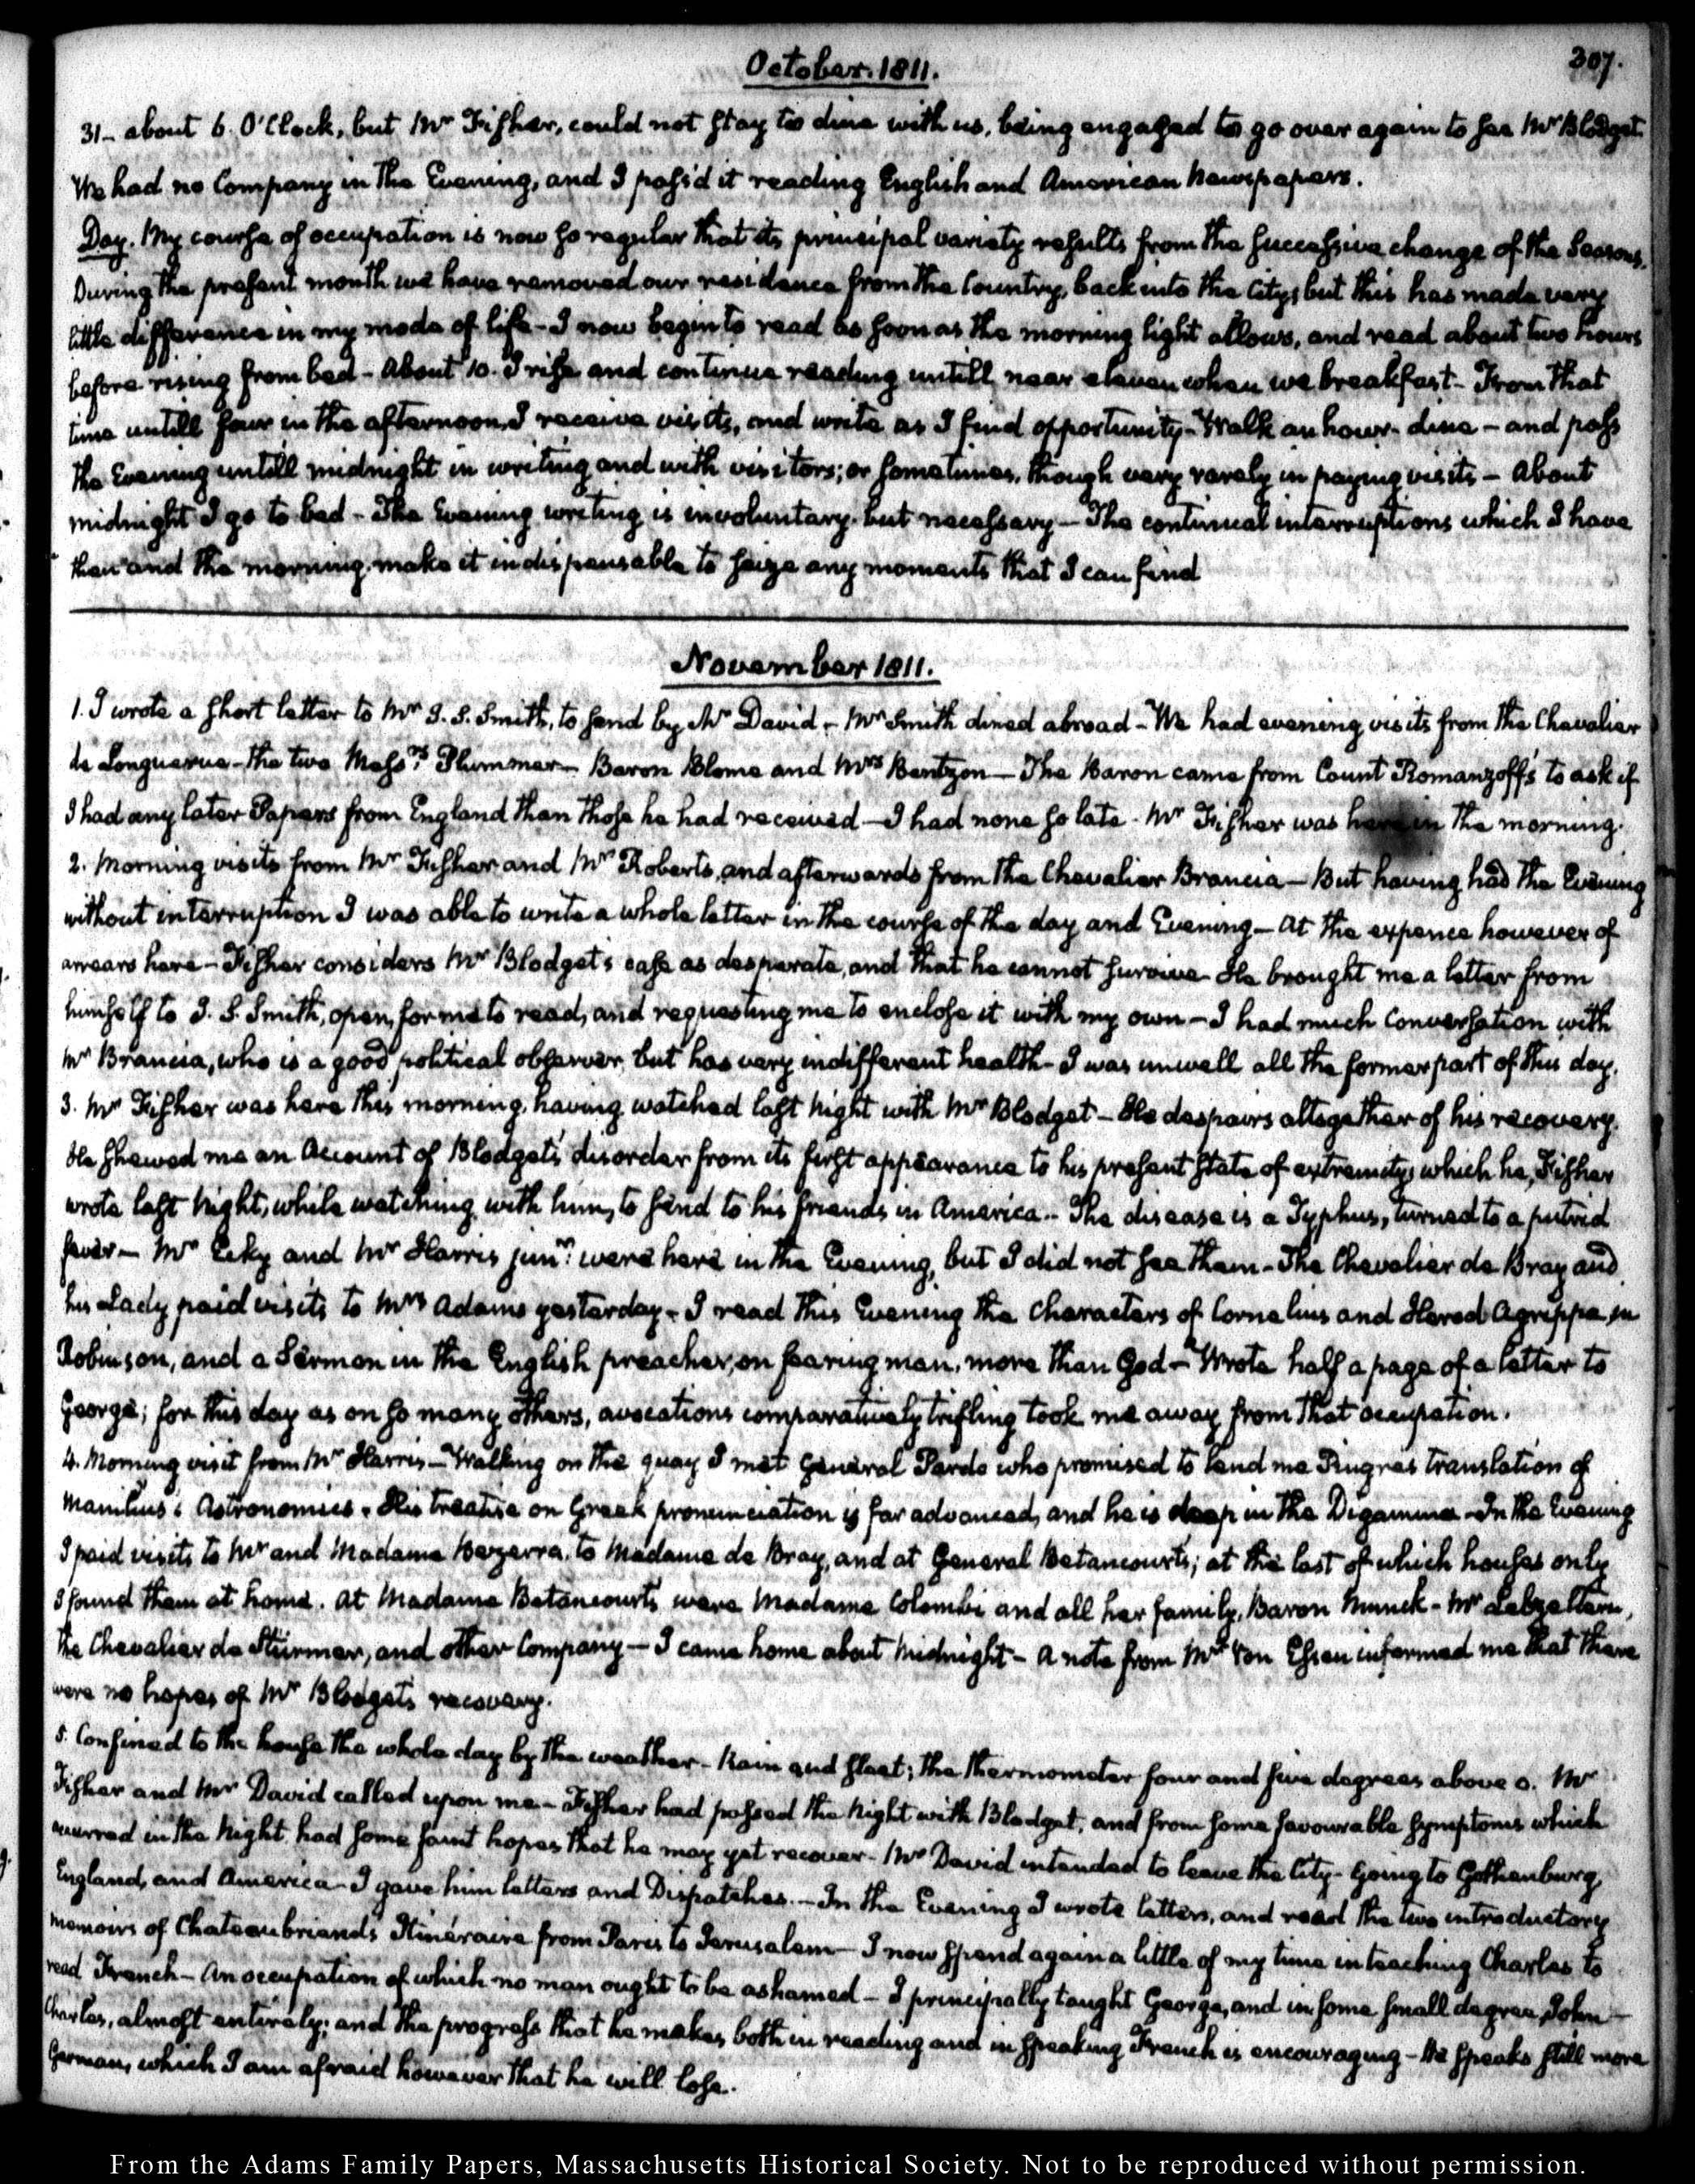 October 1811.
307.
31- about 6. O'Clock, but Mr Fisher, could not stay to dine with us, being engaged to go over again to see Mr Blodget.
We had no Company in the Evening, and I pass'd it reading English and American Newspapers.
Day. My course of occupation is now so regular that its principal variety results from the successive change of the Seasons.
During the present month we have removed our residence from the Country, back into the City; but this has made very
little difference in my mode of life - I now begin to read as soon as the morning light allows, and read about two hours
before rising from bed - About 10. I rise and continue reading untill near eleven when we breakfast - From that
time untill four in the afternoon, I receive visits, and write as I find opportunity - Walk an hour - dine - and pass
the Evening untill midnight in writing and with visitors; or sometimes, though very rarely in paying visits - About
midnight I go to bed - The Evening writing is involuntary, but necessary - The continual interruptions which I have
then and the morning, make it indispensable to seize any moments that I can find
November 1811.
1. I wrote a short letter to Mr J. S. Smith, to send by Mr David - Mr Smith dined abroad - We had evening visits from the Chevalier
de Longuerue - the two Messrs Plummer - Baron Blome and Mrs Bentzon - The Baron came from Count Romanzoff's to ask if
I had any later Papers from England than those he had received - I had none so late. Mr Fisher was here in the morning.
2. Morning visits from Mr Fisher and Mr Roberts, and afterwards from the Chevalier Brancia - But having had the Evening
without interruption I was able to write a whole letter in the course of the day and Evening - At the expence however of
arrears here - Fisher considers Mr Blodget's case as desperate, and that he cannot survive - He brought me a letter from
himself to J. S. Smith, open, for me to read, and requesting me to enclose it with my own - I had much Conversation with
Mr Brancia, who is a good political observer, but has very indifferent health - I was unwell all the former part of this day.
3. Mr Fisher was here this morning, having watched last Night with Mr Blodget - He despairs altogether of his recovery.
He shewed me an Account of Blodget's disorder from its first appearance to his present state of extremity, which he, Fisher
wrote last Night, while watching with him, to send to his friends in America - The disease is a Typhus, turned to a putrid
fever - Mr Leky and Mr Harris junr. were here in the Evening, but I did not see them - The Chevalier de Bray and
his Lady paid visits to Mrs Adams yesterday - I read this Evening the Characters of Cornelius and Herod Agrippa, in
Robinson, and a Sermon in the English preacher, on fearing man, more than God - Wrote half a page of a letter to
George; for this day as on so many others, avocations comparatively trifling took me away from that occupation.
4. Morning visit from Mr Harris - Walking on the quay I met General Pardo who promised to lend me Pingrés translation of
Manilius's Astronomics. His treatise on Greek pronunciation is far advanced, and he is deep in the Digamma - In the Evening
I paid visits to Mr and Madame Bezerra, to Madame de Bray, and at General Betancourt's; at the last of which houses only
I found them at home. At Madame Betancourt's were Madame Colombi and all her family, Baron Munck - Mr Lebzeltern,
the Chevalier de Stürmer, and other Company - I came home about Midnight - A note from Mr Von Essen informed me that there
were no hopes of Mr Blodget's recovery.
5. Confined to the house the whole day by the weather - Rain and sleet; the thermometer four and five degrees above 0. Mr
Fisher and Mr David called upon me - Fisher had passed the Night with Blodget, and from some favourable symptoms which
occurred in the Night had some faint hopes that he may yet recover - Mr David intended to leave the City - Going to Gothenburg,
England, and America - I gave him letters and Dispatches. - In the Evening I wrote letters, and read the two introductory
memoirs of Chateaubriand's Itinéraire from Paris to Jerusalem - I now spend again a little of my time in teaching Charles to
read French - An occupation of which no man ought to be ashamed - I principally taught George, and in some small degree, John -
Charles, almost entirely; and the progress that he makes both in reading and in speaking French is encouraging - He speaks still more
German, which I am afraid however that he will lose.
From the Adams Family Papers, Massachusetts Historical Society. Not to be reproduced without permission.